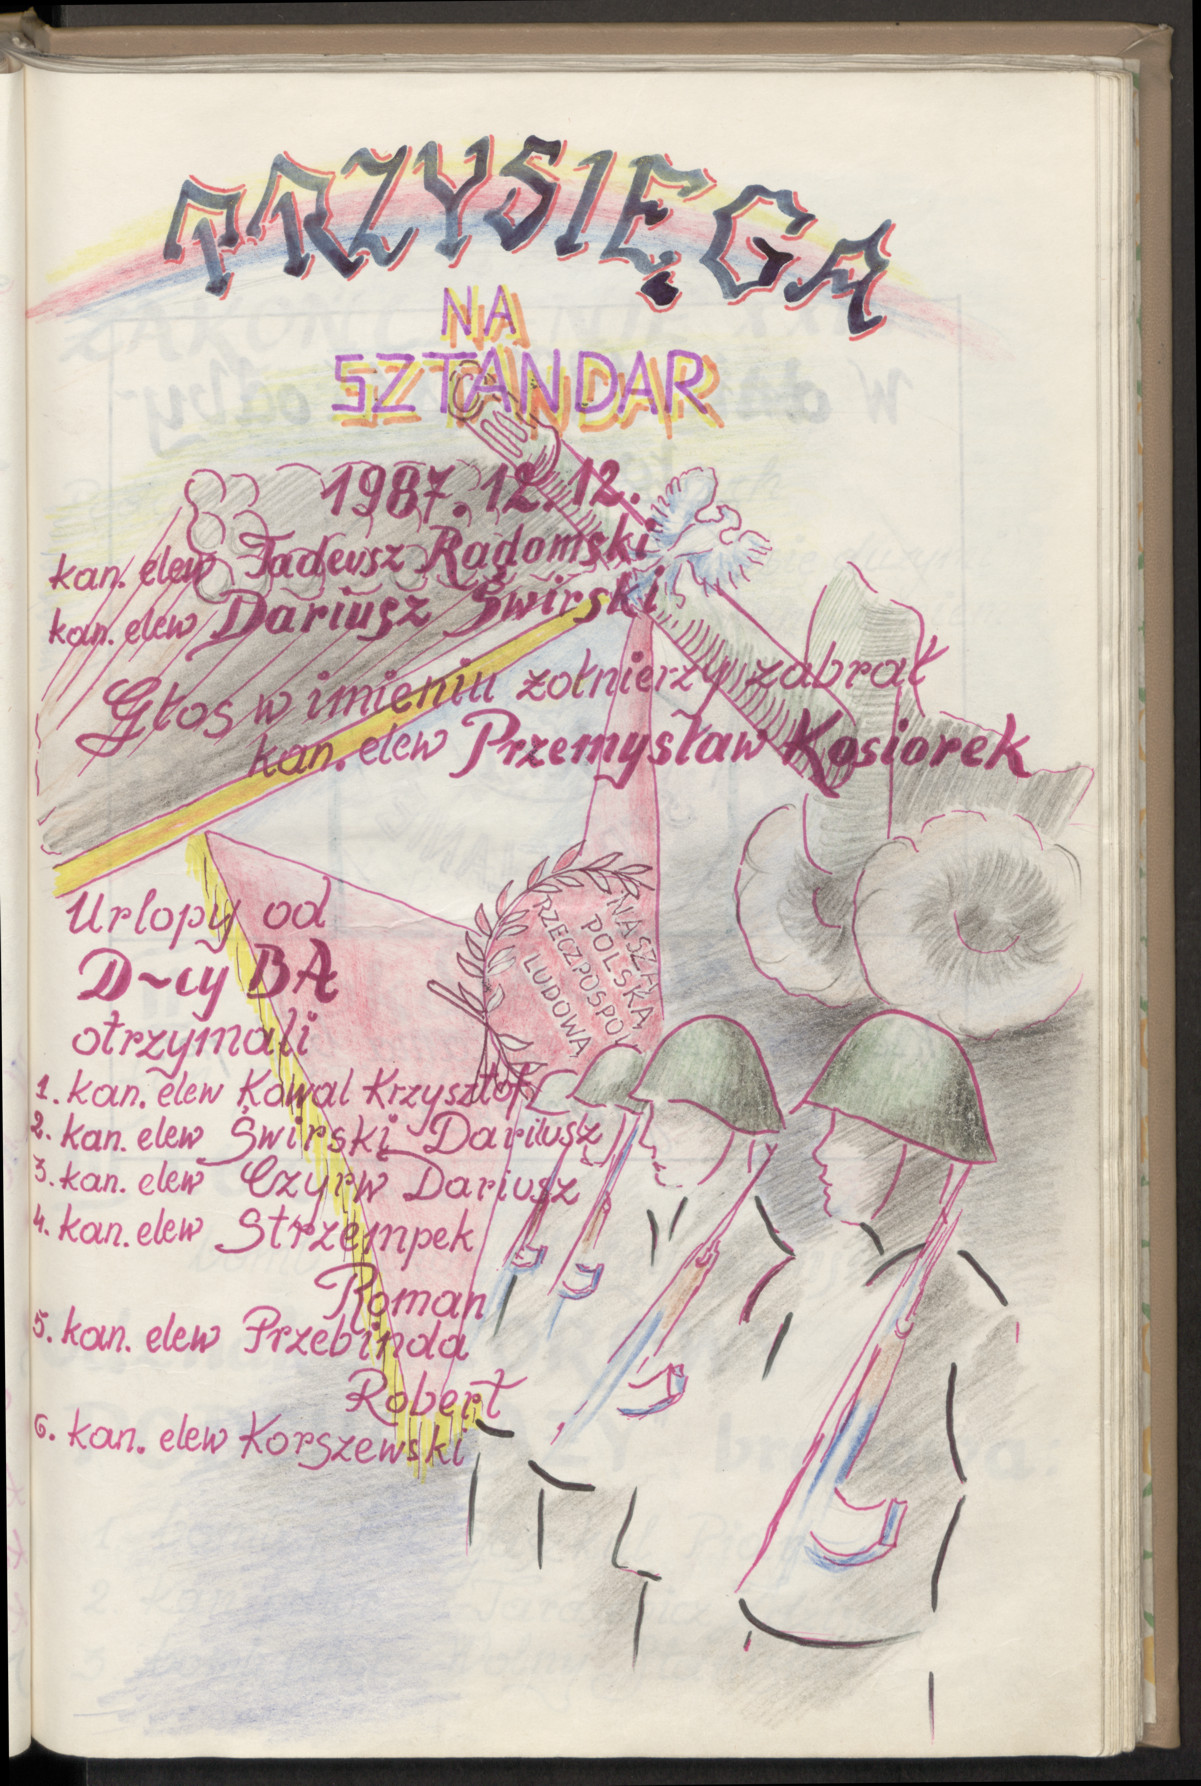 PRZYSIĘGA
NA
SZTANDAR
1987.12.12.
kan. elew Tadeusz Radomski
kan. elew Dariusz Świrski
Głos w imieniu żołnierzy zabrał
kan. elew Przemysław Kosiorek
NASZA
POLSKA
RZECZPOSPOL
LUDOWA
Urlopy od
D~cy BA
otrzymali
1. kan. elew Kowal Krzysztof
2. kan. elew Świrski Dariusz
3. kan. elew Czyrw Dariusz
4. kan. elew Strzempek
Roman
5. kan. elew Przebinda
Robert
6. kan. elew Korszewski